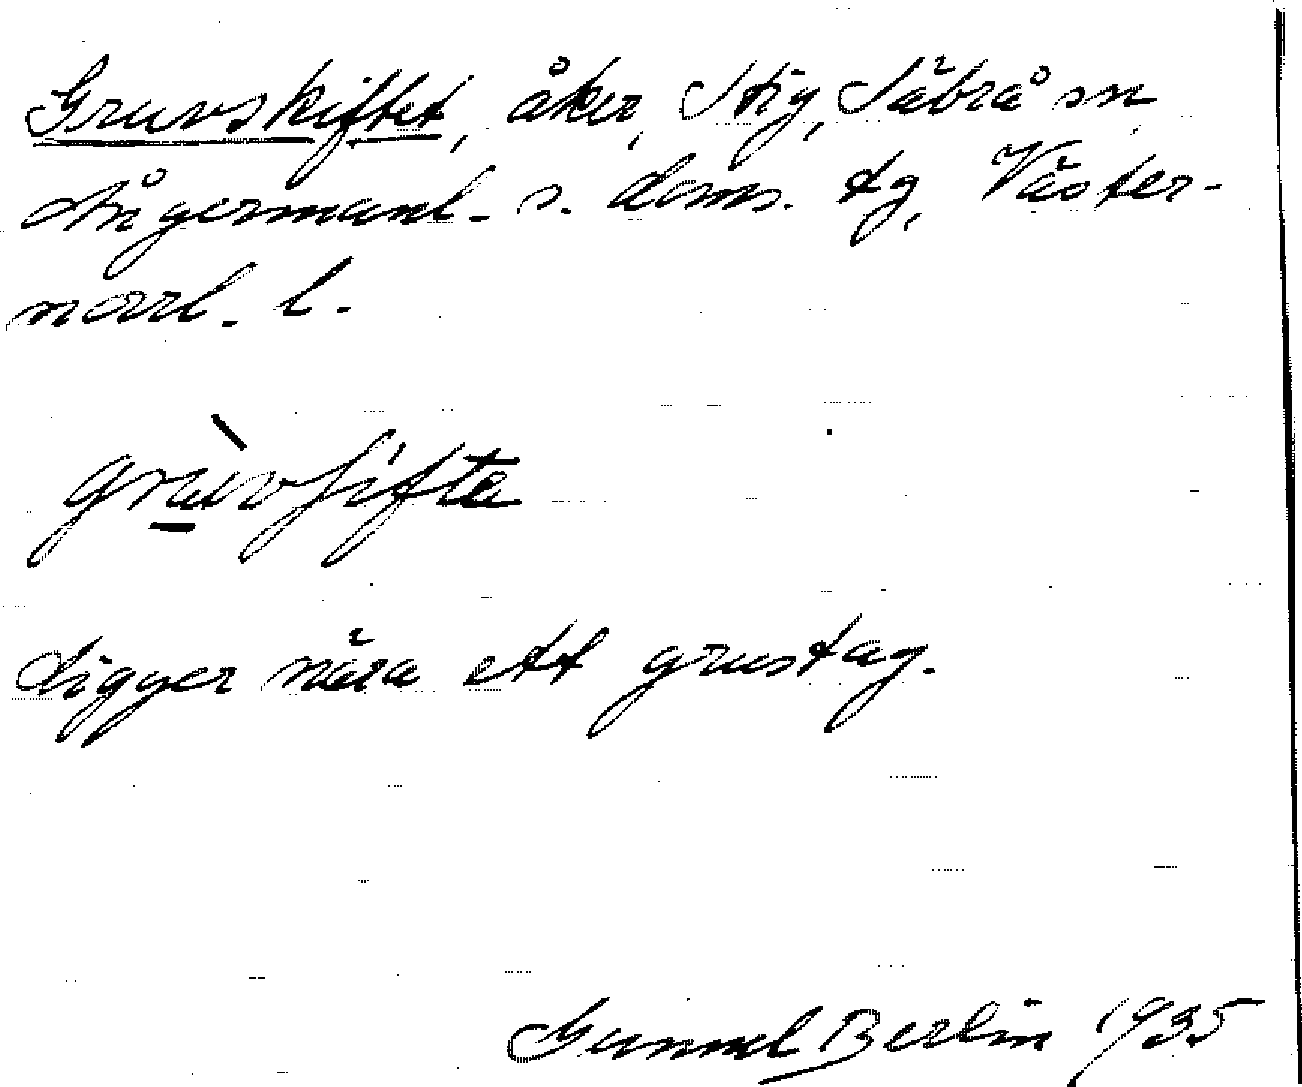 Gruvskiftet, åker, Stig, Säbrå sn
Ångermanl. s. doms. tg, Väster-
norrl. l.
grù̲vʃifta
Ligger nära ett grustag.
Gunnel Berlin 1935